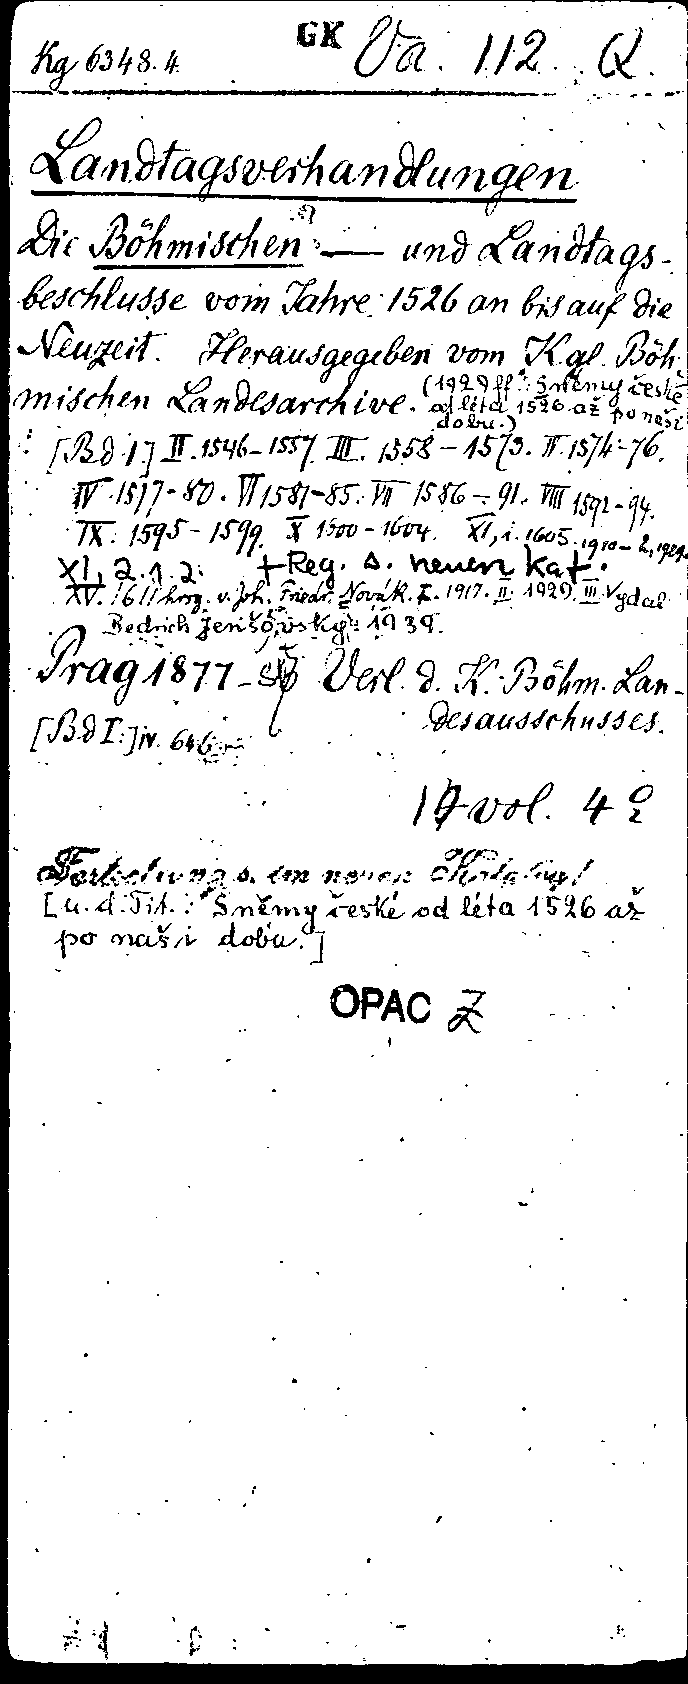 Kg 6348.4. GK Va. 112. Q.
Landtagsverhandlungen
Die Böhmischen — und Landtags-
beschlüsse vom Jahre 1526 an bis auf die
Neuzeit. Herausgegeben vom Kgl. Böh-
mischen Landesarchive. (1929 ff.: Sněmy české
od léta 1526 až po naši
dobu.)
[Bd I] II. 1546-1557. III. 1558-1573. IV. 1574-76.
V. 1577-80. VI 1581-85. VII 1586-91. VIII 1592-94.
IX. 1595-1599. X 1600-1604. XI, 1. 1605. 1910-
XI, 2. 1. 2. + Reg. s. neuen Kat.
XV. 1611 hrsg. v. Joh. Friedr. Novák. I. 1917. II. 1929. III. Vydal
Bedrich Jenšovský. 1939.
Prag 1877- Verl. d. K. Böhm. Lan-
desausschusses.
[Bd I:] IV. 646
vol. 4°
Fortsetzung s. im neuen Katalog!
[u. d. Tit.: Sněmy české od léta 1526 až
po naši dobu.]
OPAC Z